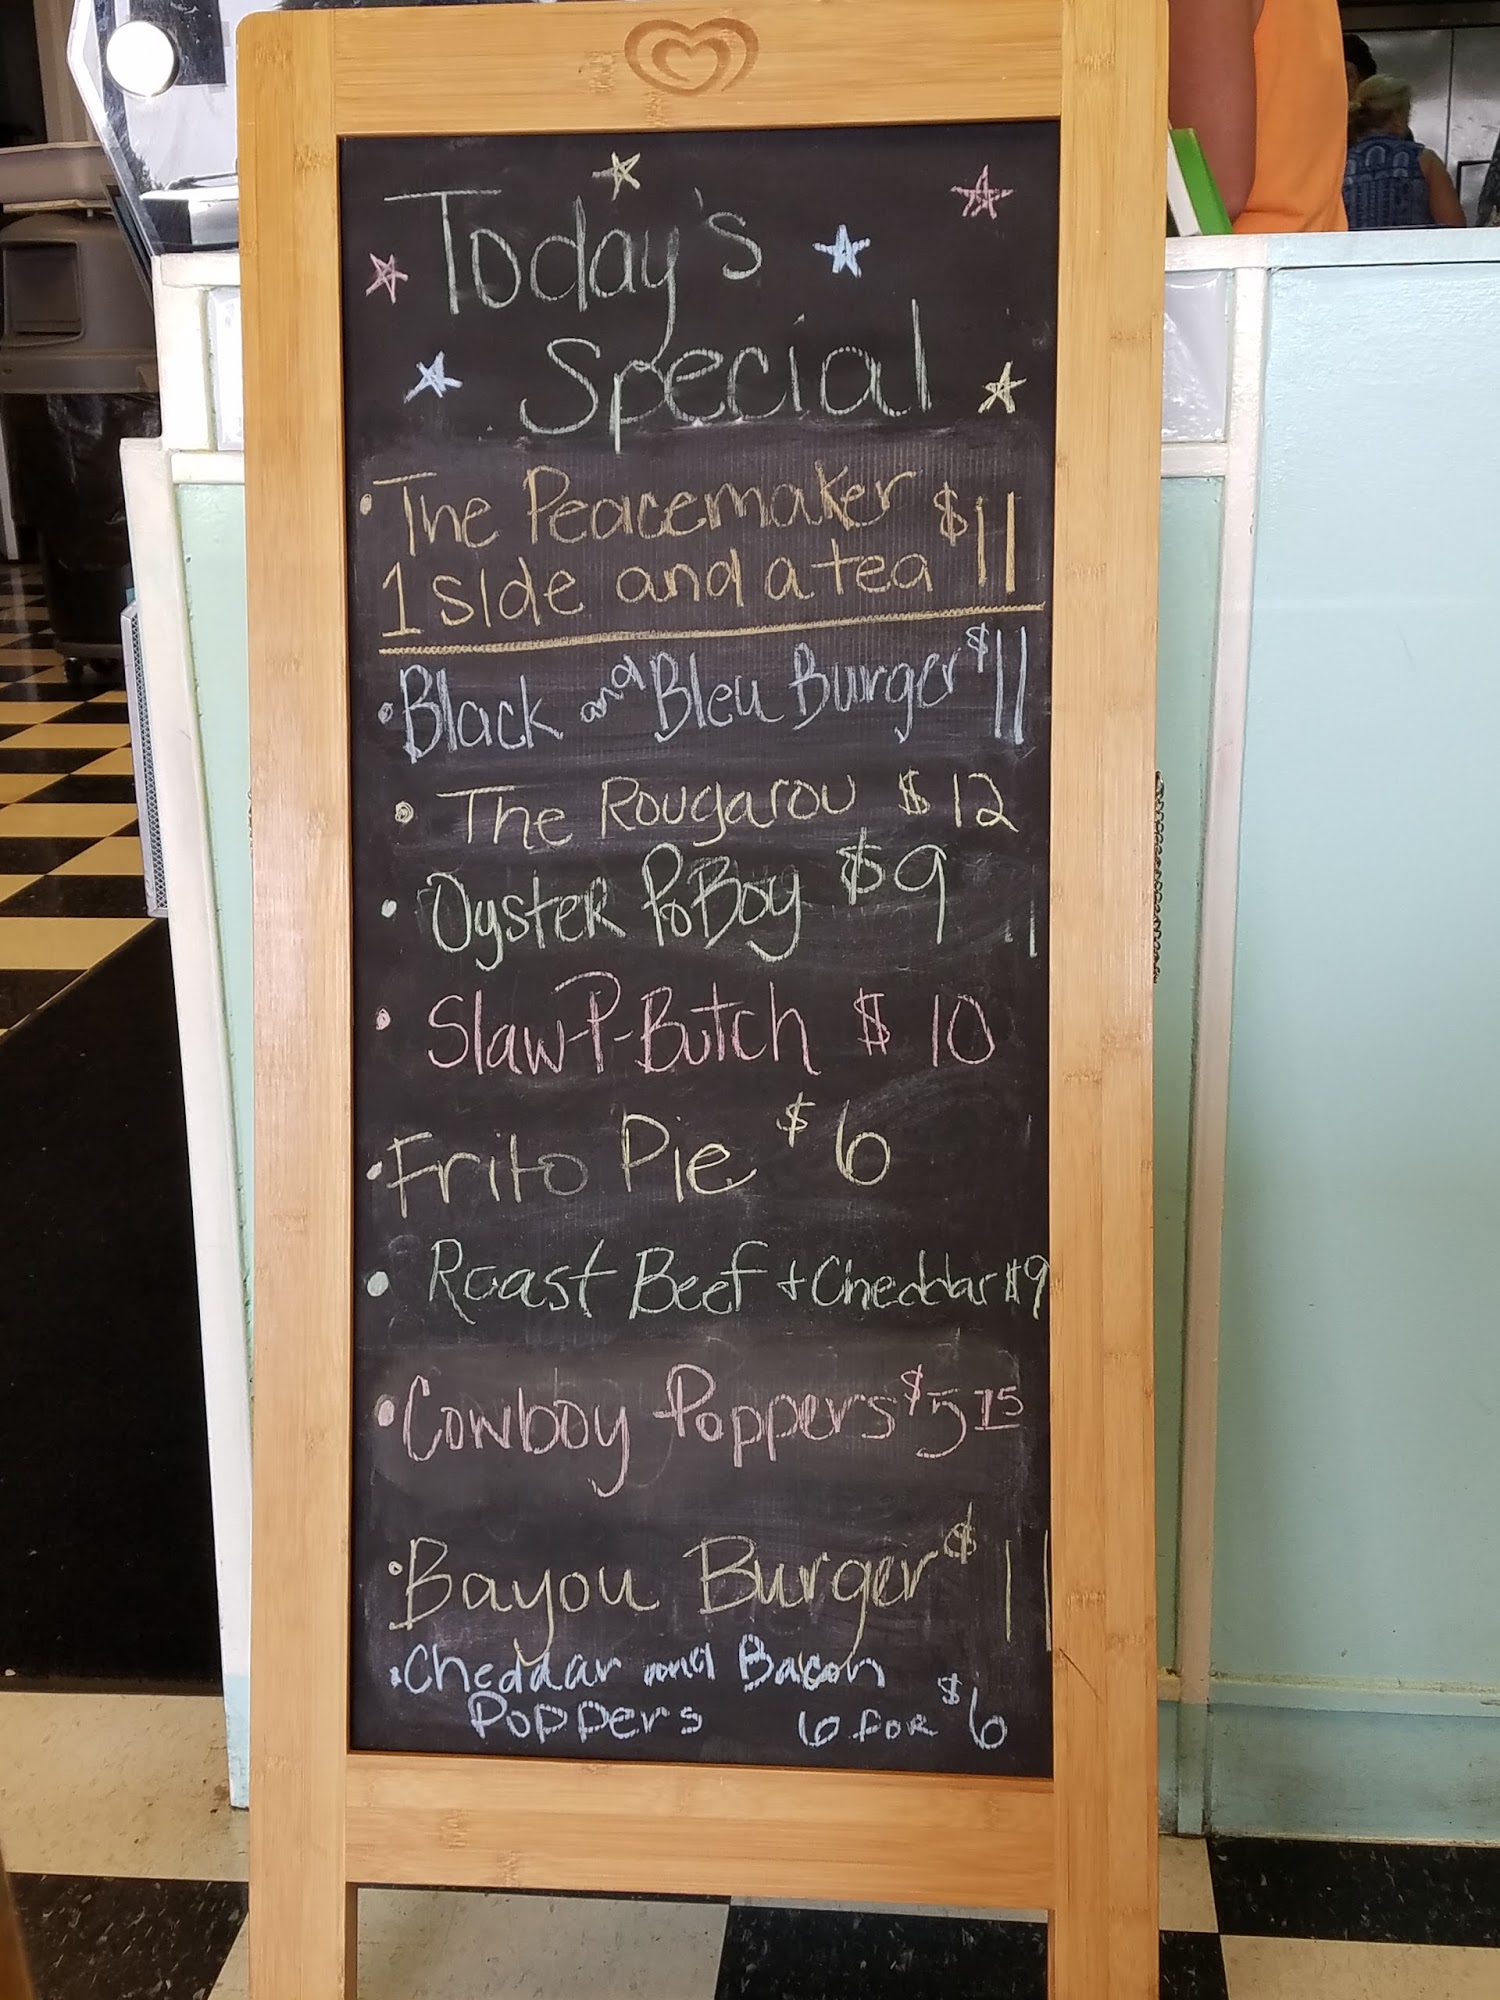 Today's
Special
• The Peacemaker
1 side and a tea $11
• Black and Bleu Burger $11
• The Rougarou $12
• Oyster PoBoy $9
• Slaw-P-Butch $10
• Frito Pie $6
• Roast Beef + Cheddar $9
• Cowboy Poppers $5 75
• Bayou Burger $11
• Cheddar and Bacon
Poppers 6 for $6